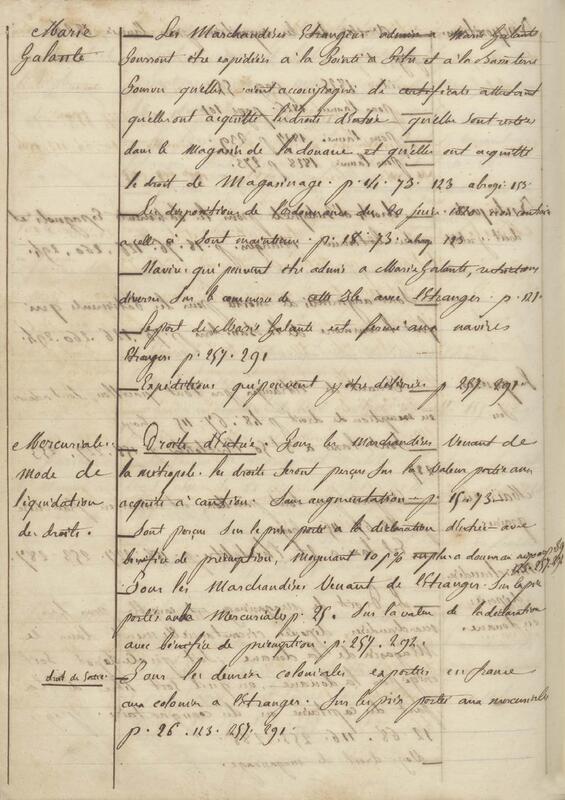 Marie
Galante
— Les Marchandises Etrangères admises a Marie Galante
Pourront être expédiées à la Pointe à Pitre et à la Basseterre
Pourvu qu'elles soient accompagnées de certificats attestant
qu'elles ont acquitté les droits d'entrée qu'elles sont restées
dans le Magasin de la douane et qu'elles ont acquitté
le droit de Magasinage. p. 14. 73. 123 abrogé 153.
— Les dispositions de l'ordonnance du 20 juin 1820
a celle ci sont maintenues p. 18. 73. abrog 123
— Navires qui peuvent être admis à Marie Galante, restrictions
diverses sur le commerce de cette Isle avec l'Etranger. p. 121.
— Le port de Marie Galante est fermé aux navires
Etrangers p. 257. 291
— Expéditions qui peuvent y être délivrées p. 257. 291.
Mercuriales.
mode de
liquidation
des droits.
— Droits d'Entrée. Pour les Marchandises Venant de
la métropole. les droits seront perçus sur la valeur portée aux
acquits à caution. Sans augmentation — p. 15. 73 —
— Sont perçus sur le prix porté à la déclaration d'entrée — avec
bénéfice de préemption, moyennant 10 p% en plus a donner au
123. 257. 292
— Pour les Marchandises Venant de l'Etranger. Sur le prix
portés aux Mercuriales p. 25. Sur la valeur de la déclaration
avec bénéfice de préemption. p. 257. 292.
droit de Sortie.
— Pour les denrées coloniales exportées en france
aux colonies a l'Etranger. Sur les prix portés aux mercuriales
p. 26. 123. 257. 291.